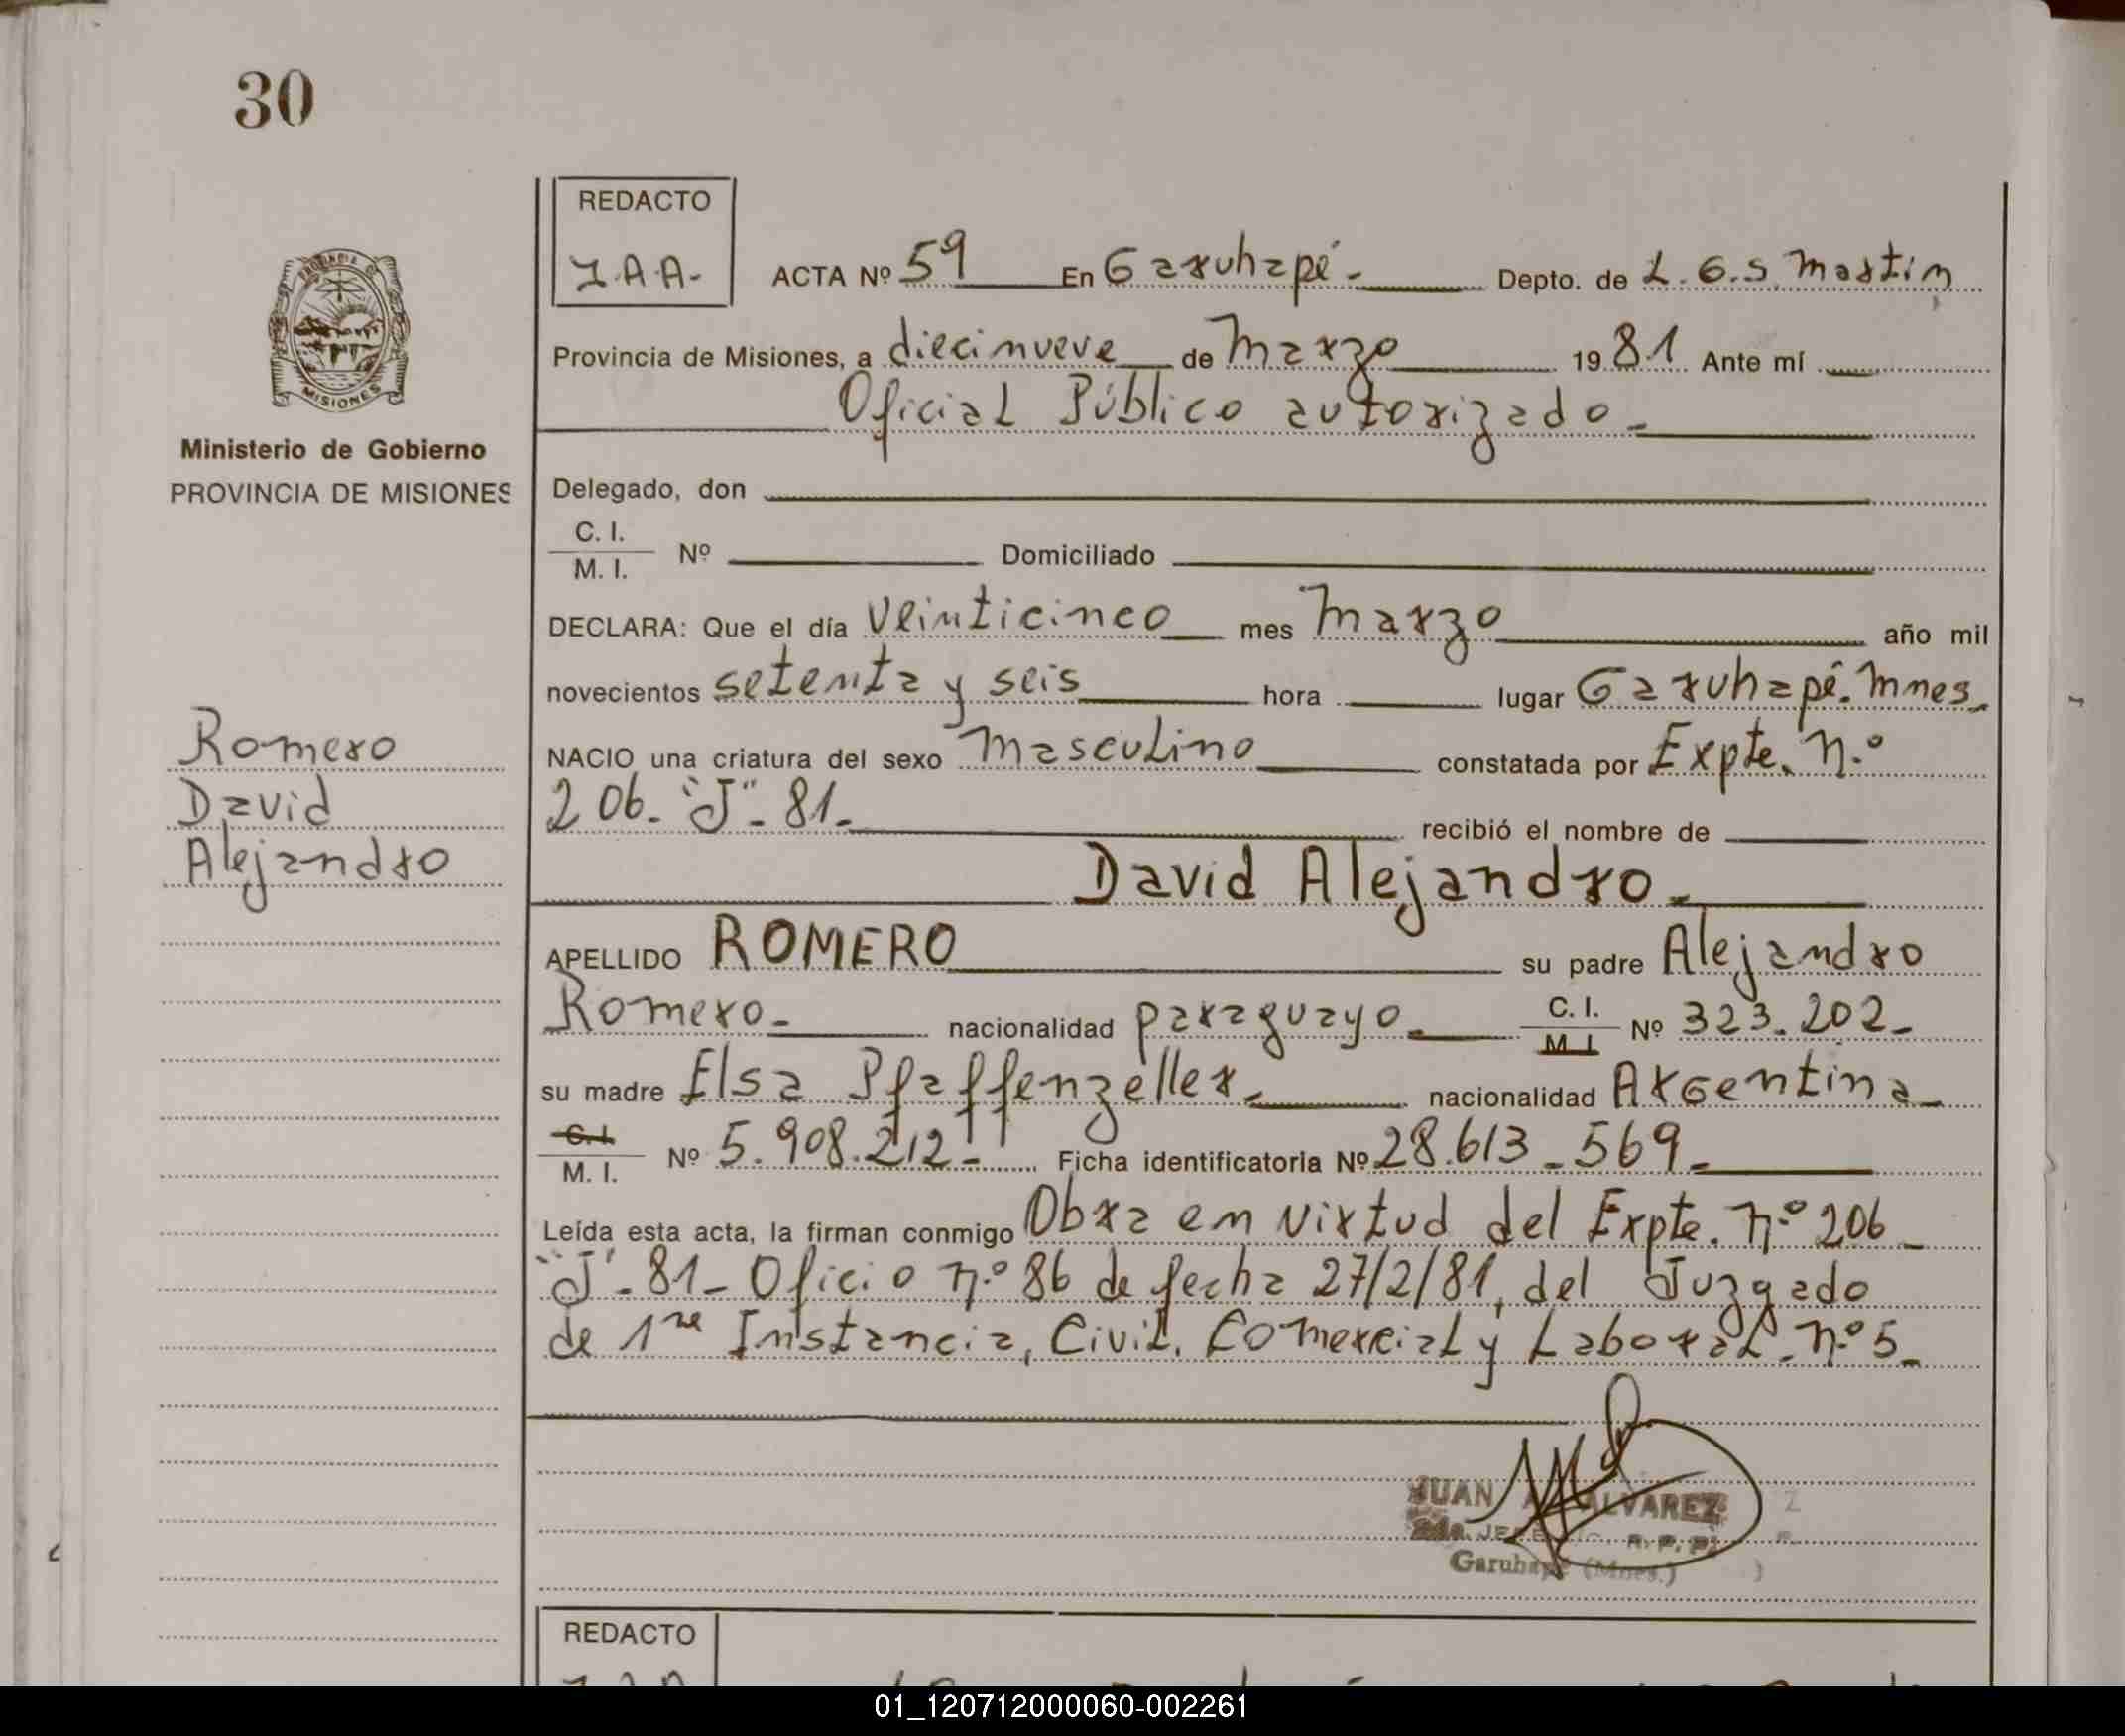 30
REDACTO
J.A.A.- ACTA Nº 59 En Garuhapé.- Depto. de L.G.S. Martín
Provincia de Misiones, a diecinueve de Marzo 19 81 Ante mí
Oficial Público autorizado.-
Ministerio de Gobierno
PROVINCIA DE MISIONES
Delegado, don
C. I.
M. I. Nº Domiciliado
DECLARA: Que el día Veinticinco mes Marzo año mil
novecientos setenta y seis hora lugar Garuhapé. Mnes.
Romero
David
Alejandro
NACIO una criatura del sexo Masculino constatada por Expte. n.º
206. "J"- 81.- recibió el nombre de
David Alejandro.-
APELLIDO ROMERO su padre Alejandro
Romero.- nacionalidad paraguayo.- C. I. M. I. Nº 323.202.-
su madre Elsa Pfaffenzeller.- nacionalidad Argentina-
C. I. M. I. Nº 5.908.212-. Ficha identificatoria Nº 28.613-569-
Leída esta acta, la firman conmigo Obra en virtud del Expte. n.º 206-
"J"- 81- Oficio n.º 86 de fecha 27/2/81, del Juzgado
de 1ra Instancia, Civil. Comercial y Laboral. n.º 5-
JUAN ALVAREZ
R. P. P.
Garuhapé (Mnes.)
REDACTO
01_120712000060-002261